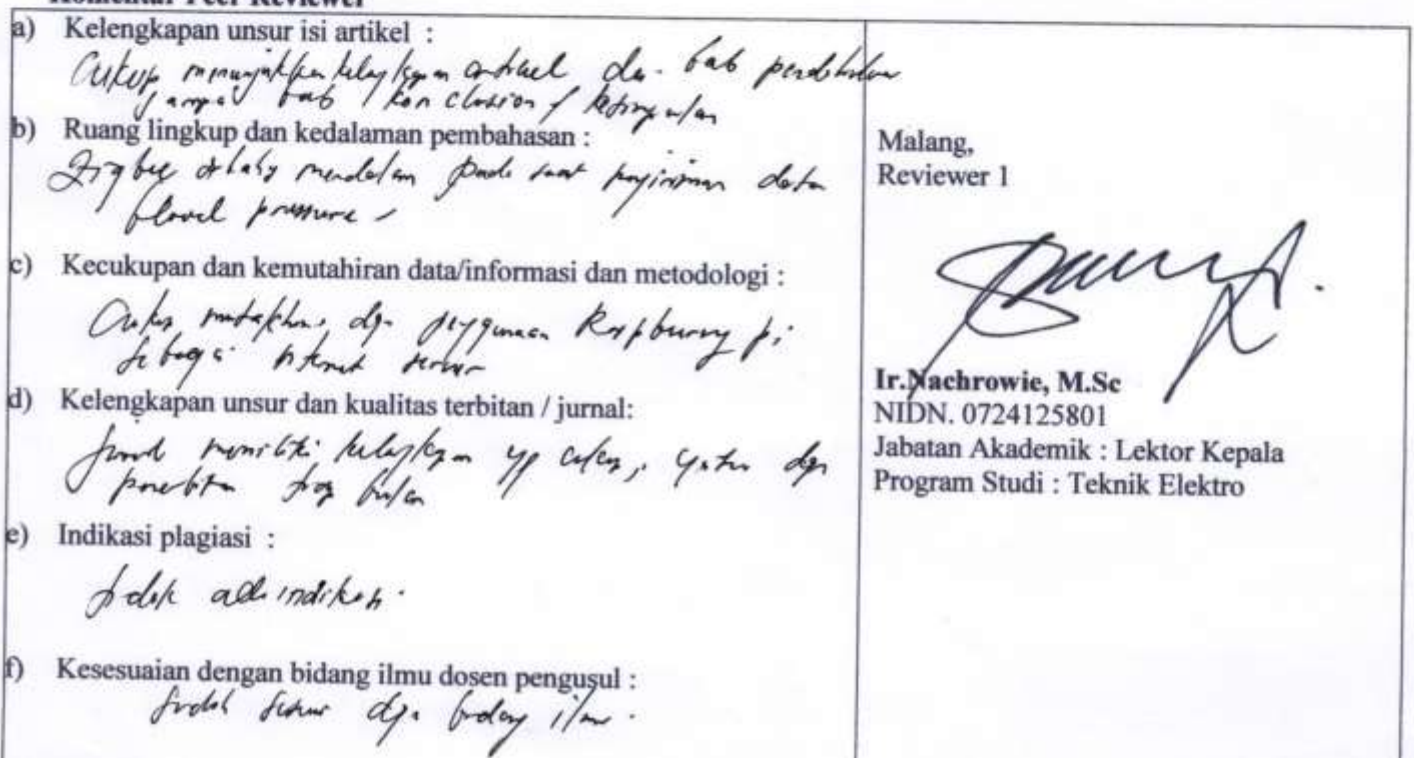 Komentar Peer Reviewer
a) Kelengkapan unsur isi artikel :
Cukup artikel bab
bab conclusion /
b) Ruang lingkup dan kedalaman pembahasan :
Zigbee pada saat data
pressure
c) Kecukupan dan kemutahiran data/informasi dan metodologi :
Cukup dgn penggunaan Raspberry pi
sebagai internet server
d) Kelengkapan unsur dan kualitas terbitan / jurnal:
Jurnal memiliki yg cukup, yaitu dgn
bulan
e) Indikasi plagiasi :
tidak ada indikasi.
f) Kesesuaian dengan bidang ilmu dosen pengusul :
sudah sesuai dgn bidang ilmu.
Malang,
Reviewer 1
Ir.Nachrowie, M.Sc
NIDN. 0724125801
Jabatan Akademik : Lektor Kepala
Program Studi : Teknik Elektro